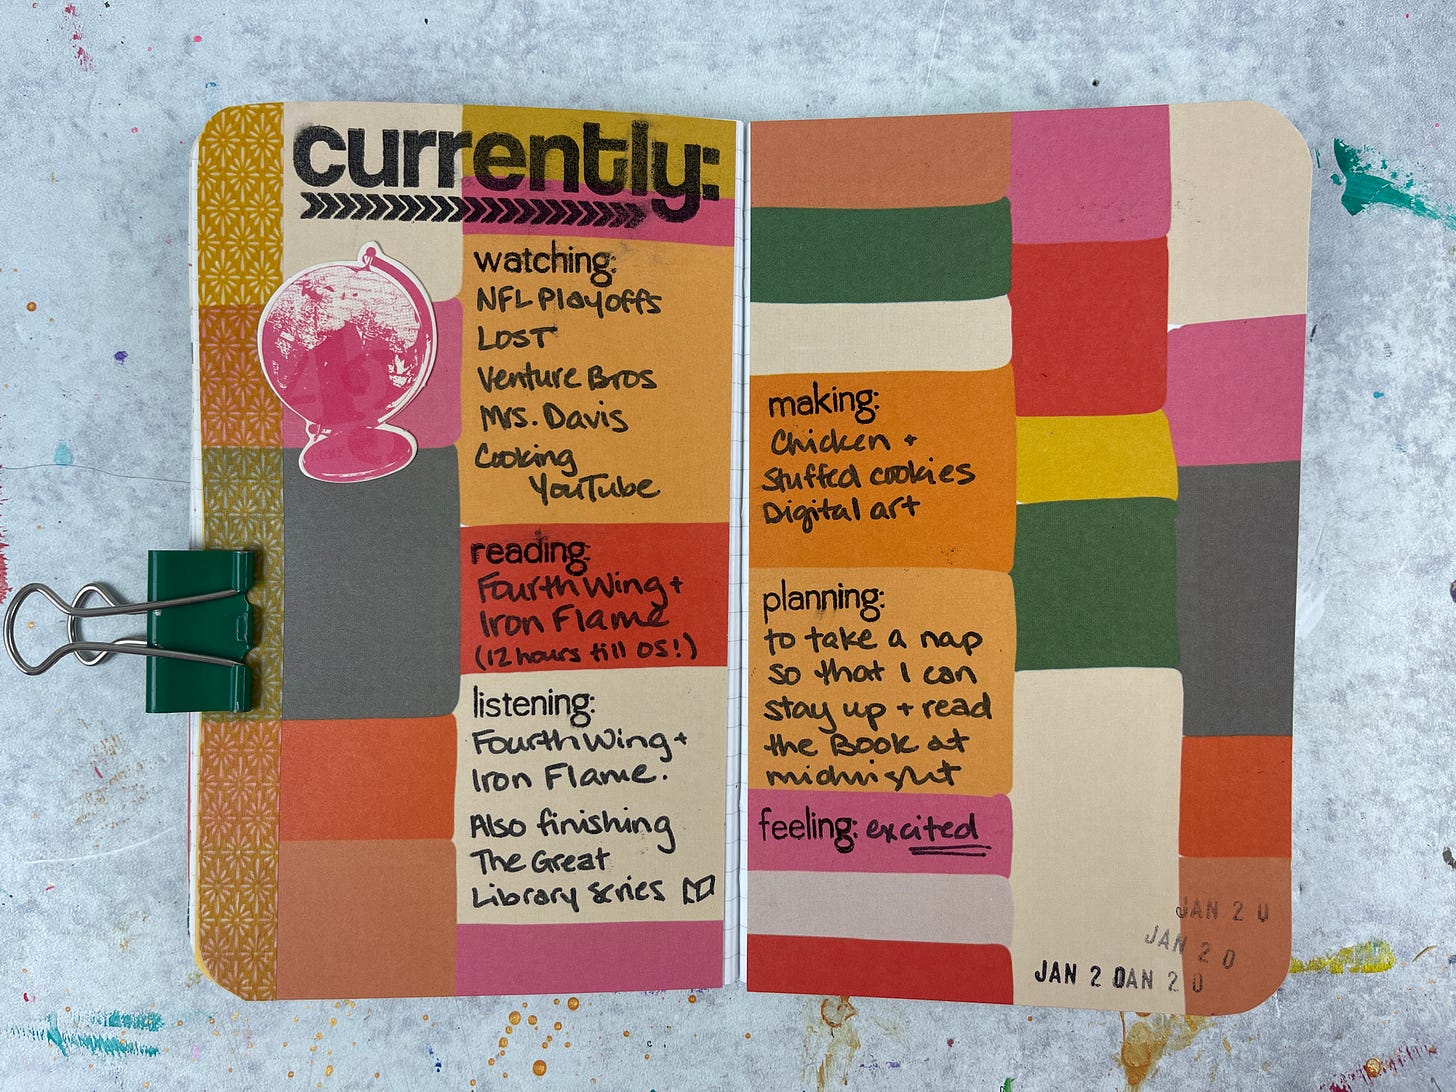 currently:
watching:
NFL Playoffs
LOST
Venture Bros
Mrs. Davis
Cooking
YouTube
reading:
Fourth Wing +
Iron Flame
(12 hours till OS!)
listening:
Fourth Wing +
Iron Flame.
Also finishing
The Great
Library series
making:
Chicken +
Stuffed cookies
Digital art
planning:
to take a nap
so that I can
stay up + read
the Book at
midnight
feeling: excited
JAN 20
JAN 20
JAN 20AN 20